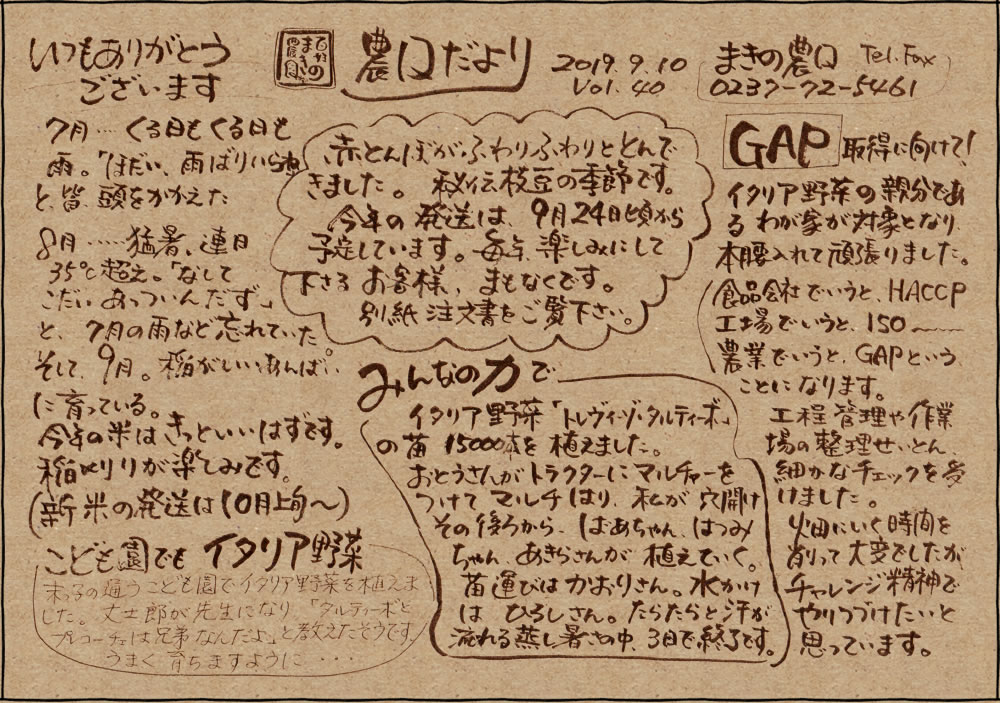 いつもありがとう
ございます
まきの
農園
農口だより
2019.9.10
Vol.40
まきの農口 Tel.Fax
0237-72-5461
7月…くる日もくる日も
雨。「ほだい、雨ばりいらね」
と、皆、頭をかかえた
8月……猛暑、連日
35℃超え。「なして
こだいあっついんだず」
と、7月の雨など忘れていた。
そして、9月。稲がいいあんばい
に育っている。
今年の米はきっといいはずです。
稲刈りが楽しみです。
(新米の発送は10月上旬〜)
こども園でもイタリア野菜
末っ子の通うこども園でイタリア野菜を植えま
した。丈士郎が先生になり「タルティーボと
プレコーチェは兄弟なんだよ」と教えたそうです。
うまく育ちますように・・・
赤とんぼがふわりふわりととんで
きました。秘伝枝豆の季節です。
今年の発送は、9月24日頃から
予定しています。毎年、楽しみにして
下さるお客様、まもなくです。
別紙注文書をご覧下さい。
みんなの力で
イタリア野菜「トレヴィーゾ・タルティーボ」
の苗15000本を植えました。
おとうさんがトラクターにマルチャーを
つけてマルチはり、私が穴開け
その後ろから、ばあちゃん、はつみ
ちゃん、あきらさんが植えていく。
苗運びはかおりさん。水かけ
はひろしさん。たらたらと汗が
流れる蒸し暑さの中、3日で終了です。
GAP取得に向けて!
イタリア野菜の親分であ
るわが家が対象となり、
本腰入れて頑張りました。
食品会社でいうと、HACCP
工場でいうと、ISO〜
農業でいうと、GAPという
ことになります。
工程管理や作業
場の整理せいとん、
細かなチェックを受
けました。
畑にいく時間を
削って大変でしたが
チャレンジ精神で
やりつづけたいと
思っています。